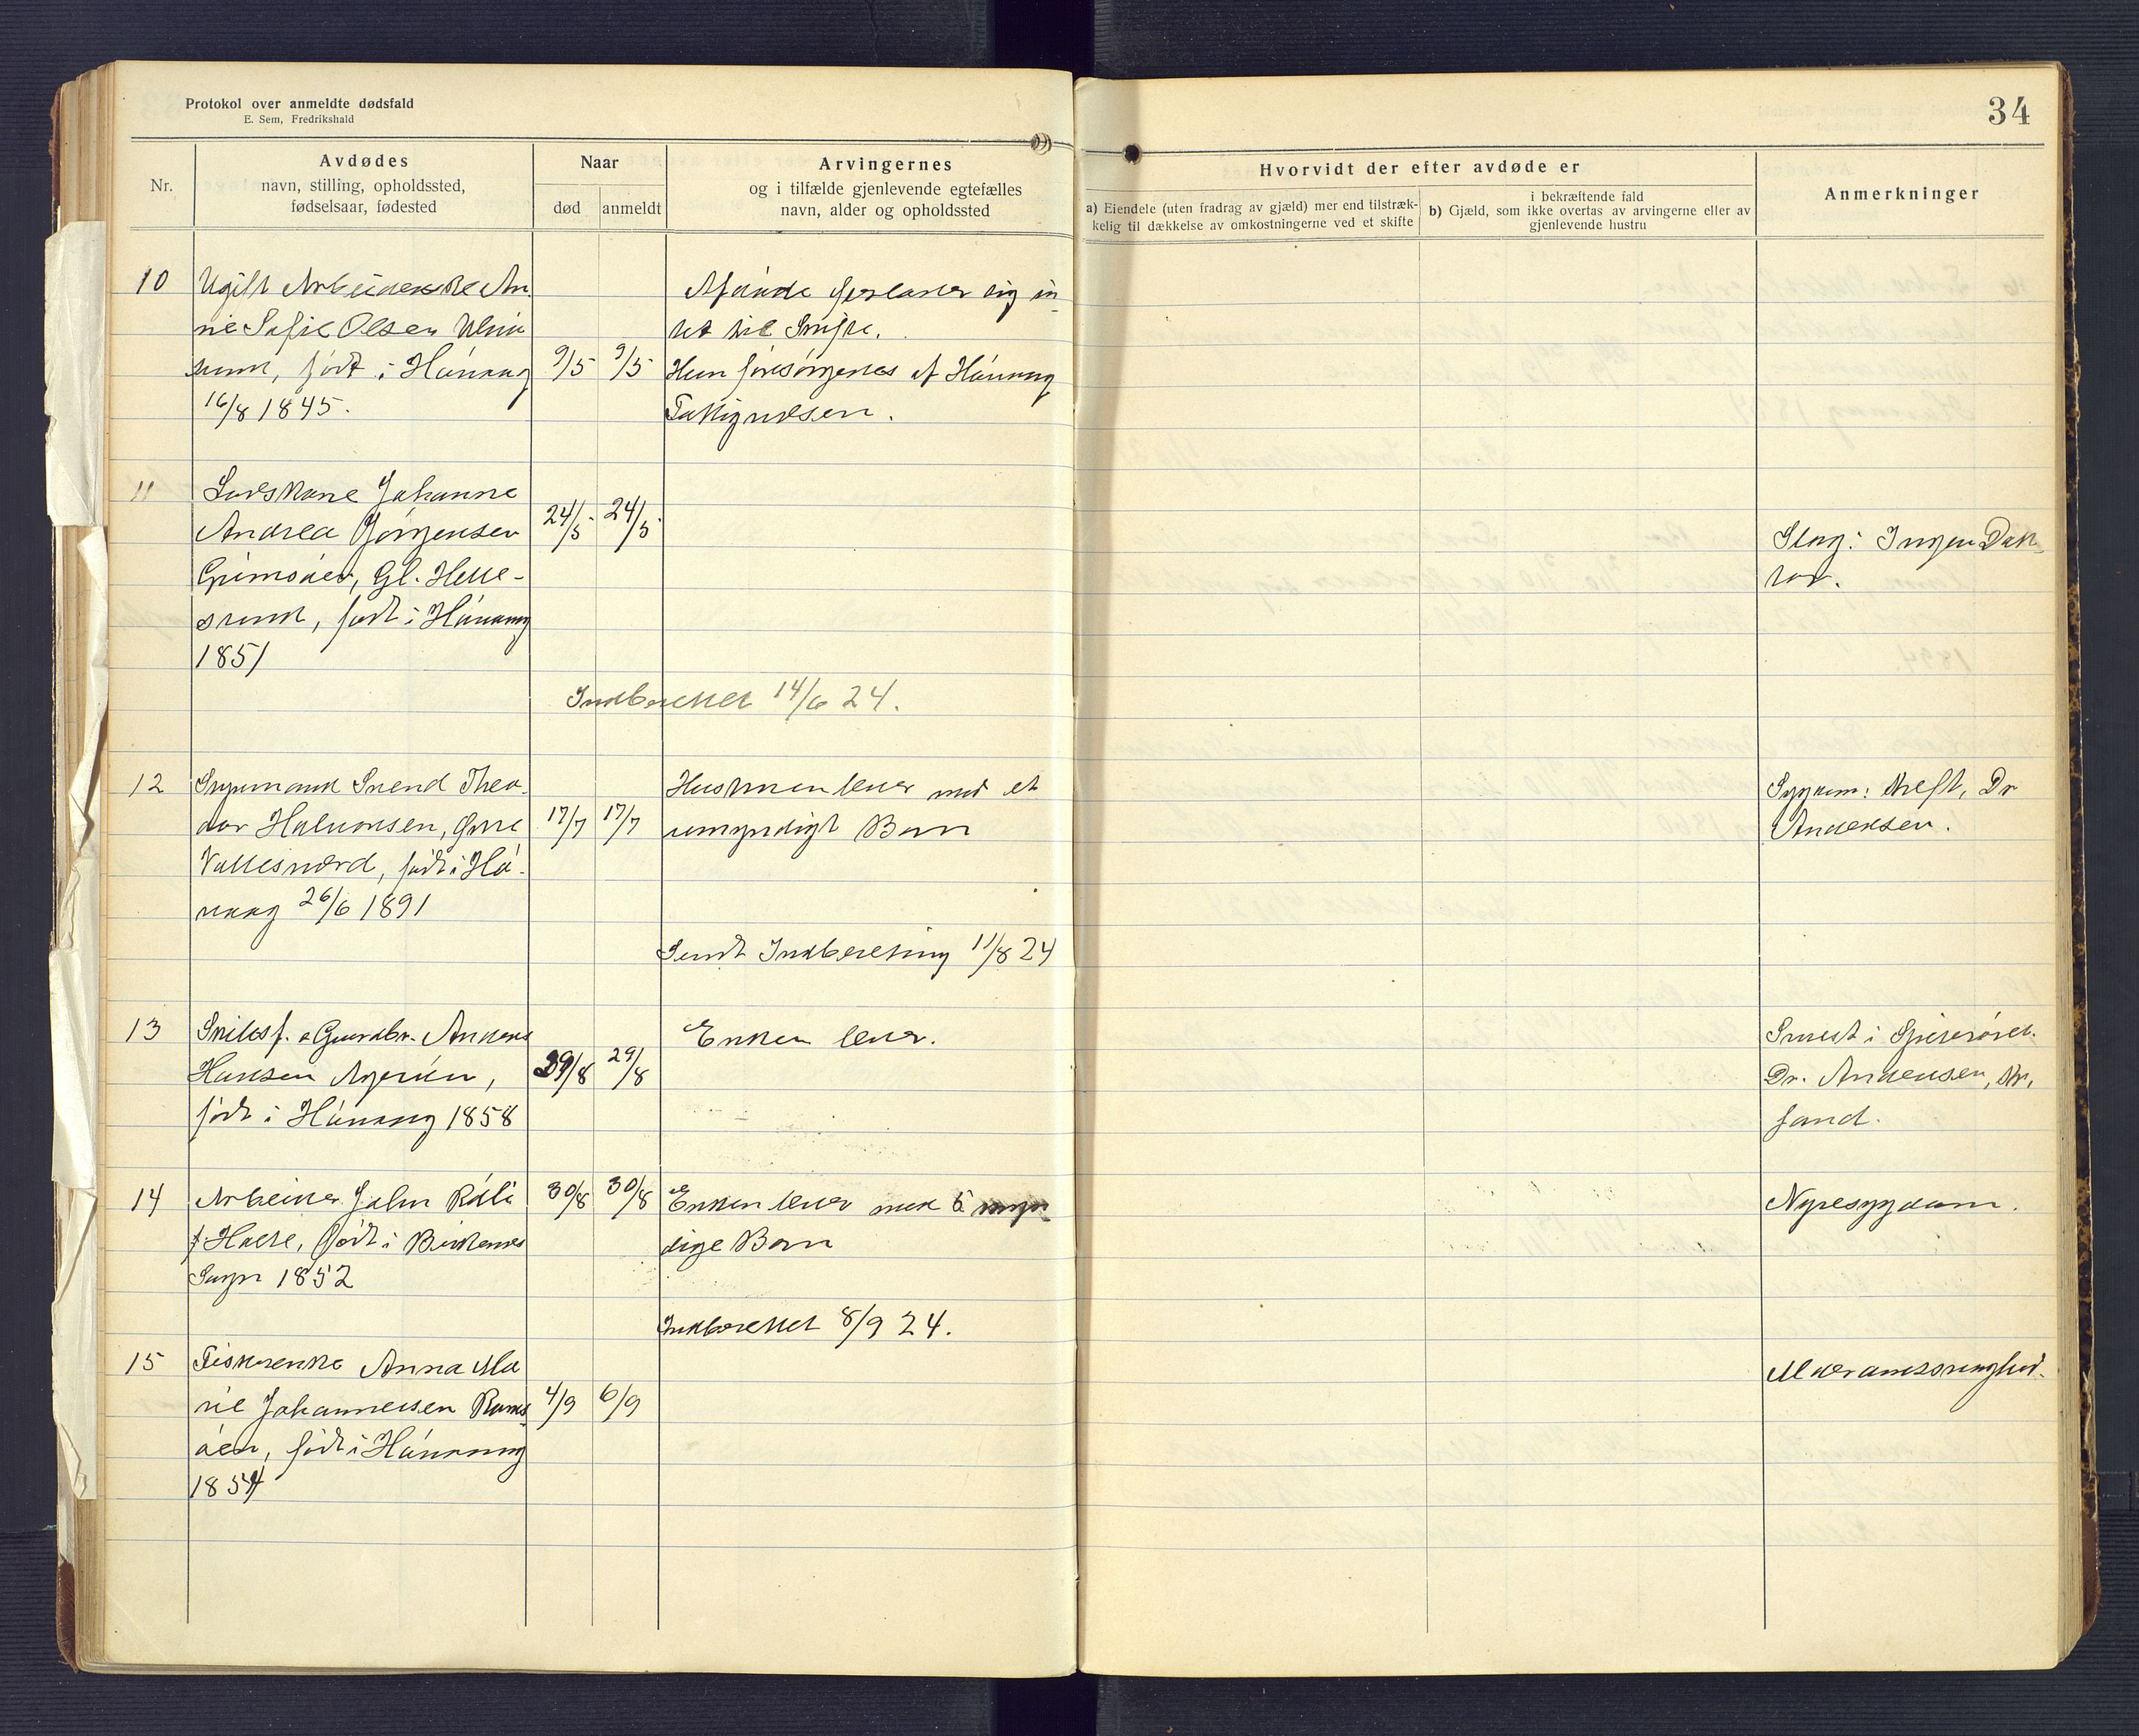 Protokol over anmeldte dødsfald
E. Sem, Fredrikshald
34
Nr.
Avdødes
navn, stilling, opholdssted,
fødselsaar, fødested
Naar
død
anmeldt
Arvingernes
og i tilfælde gjenlevende egtefælles
navn, alder og opholdssted
Hvorvidt der efter avdøde er
a) Eiendele (uten fradrag av gjæld) mer end tilstræk-
kelig til dækkelse av omkostningerne ved et skifte
i bekræftende fald
b) Gjæld, som ikke overtas av arvingerne eller av
gjenlevende hustru
Anmerkninger
10
Ugift Arbeiderske An
nie Sofie Olsen
født i Hövaag
16/8 1845.
9/5
9/5
Afdöde in
tet til Skifte.
Hun forsörgedes af Hövaag
Fattigvæsen.
11
Johanne
Andrea Jörgensen
Grimsöen, Gl. Helle-
sund, født i Hövaag
1851
24/5
24/5
Slag: Ingen Dok
tor.
Indberettet 14/6 24.
12
Svend Theo-
dor Halvorsen,
Vallesværd, født i Hö-
vaag 26/6 1891
17/7
17/7
Hustruen lever med et
umyndigt Barn
Sygdom: Kreft, Dr
Andersen.
Sendt Indberetning 11/8 24
13
Skibsf. & Gaardbr. Anders
Hansen Ageröen,
født i Hövaag 1858
29/8
29/8
Enken lever.
i Spiseröret.
Dr. Andersen, Kr.
sand.
14
Arbeider John
født i Birkenes
Sogn 1852
30/8
30/8
Enken lever med 5 myn
dige Børn
Nyresygdom.
Indberettet 8/9 24.
15
Fiskerenke Anna Ma
rie Johannesen Rams
öen, født i Hövaag
1854
4/9
6/9
Alderdomssvaghed.